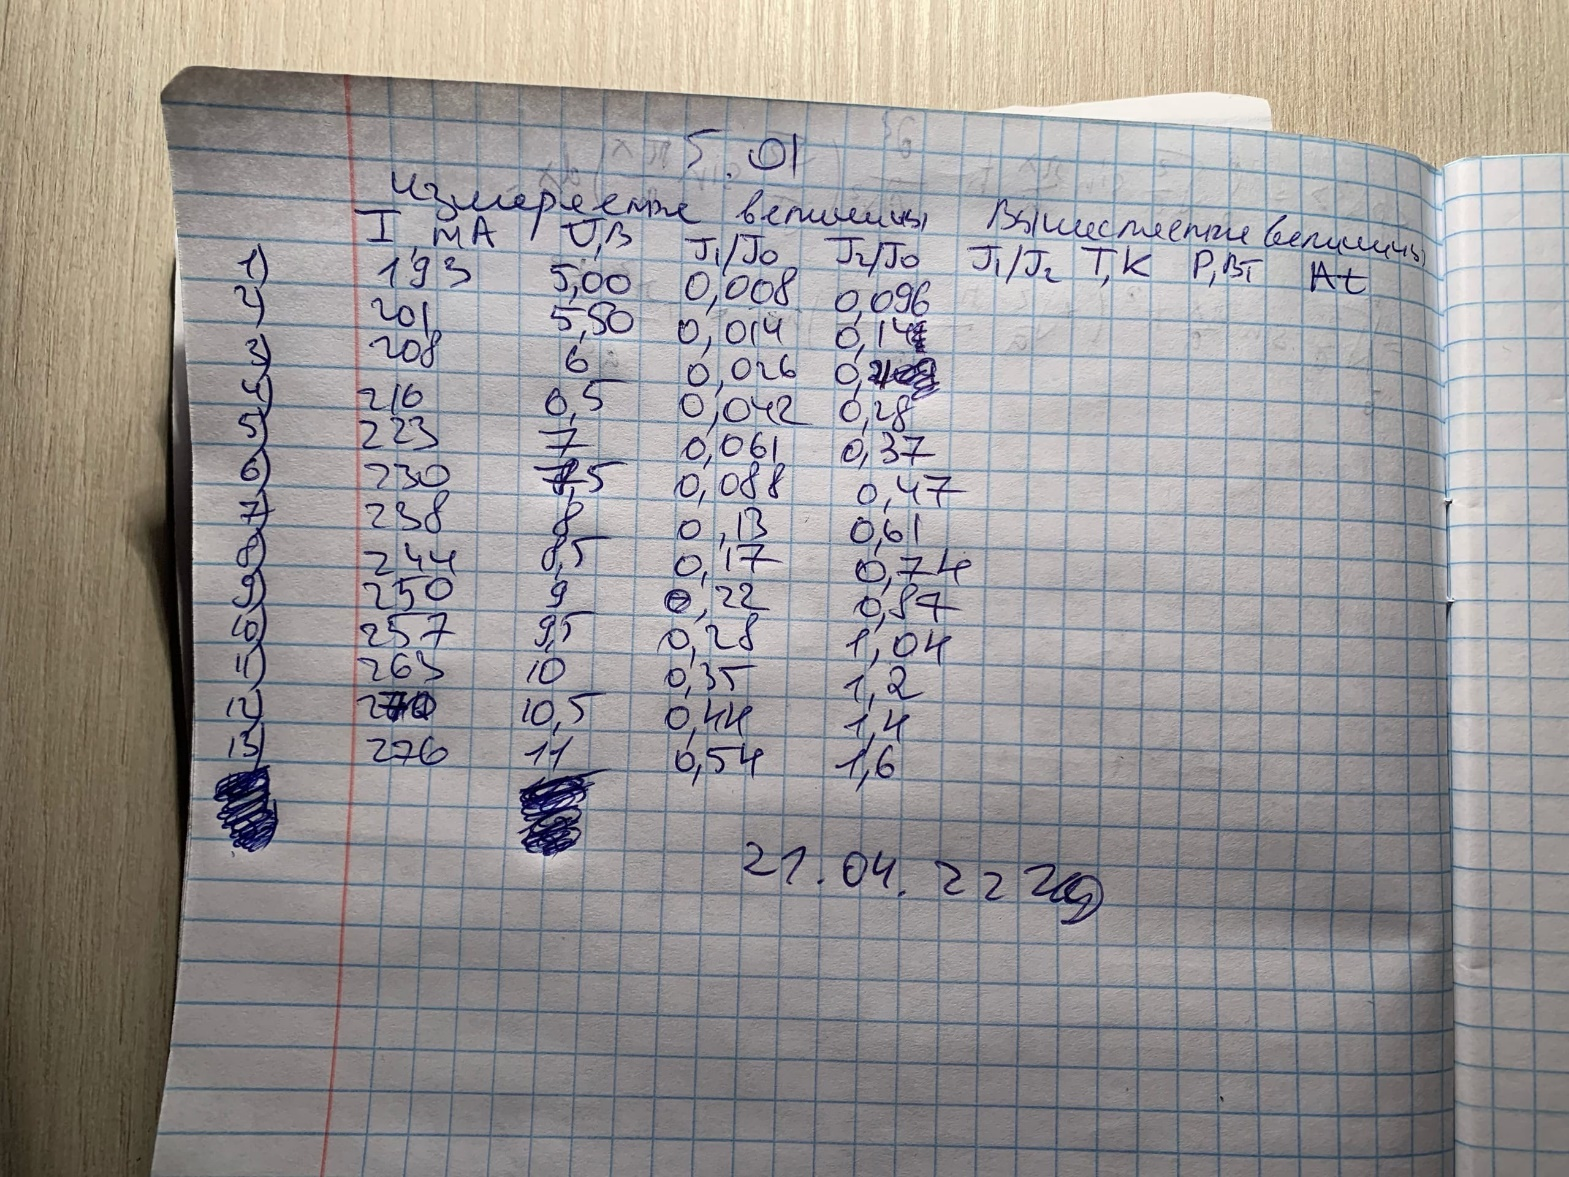 5.01
Измеряемые величины Вычисляемые величины
I, мА U,В J₁/J₀ J₂/J₀ J₁/J₂ T,K P,Вт At
1) 193 5,00 0,008 0,096
2) 201 5,50 0,014 0,14
3) 208 6 0,026
4) 216 6,5 0,042 0,28
5) 223 7 0,061 0,37
6) 230 7,5 0,088 0,47
7) 238 8 0,13 0,61
8) 244 8,5 0,17 0,74
9) 250 9 0,22 0,87
10) 257 9,5 0,28 1,04
11) 263 10 0,35 1,2
12) 270 10,5 0,44 1,4
13) 276 11 0,54 1,6
21.04.22